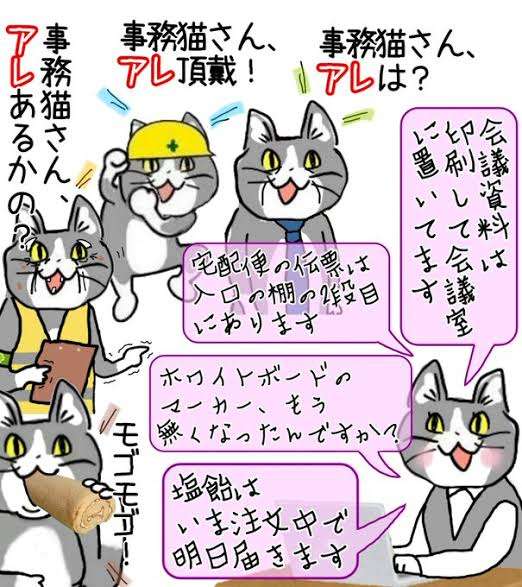 事務猫さん、
アレは？
事務猫さん、
アレ頂戴！
事務猫さん、
アレあるかの？
モゴモゴ！
会議資料は
印刷して会議室
に置いてます
宅配便の伝票は
入口の棚の2段目
にあります
ホワイトボードの
マーカー、もう
無くなったんですか？
塩飴は
いま注文中で
明日届きます